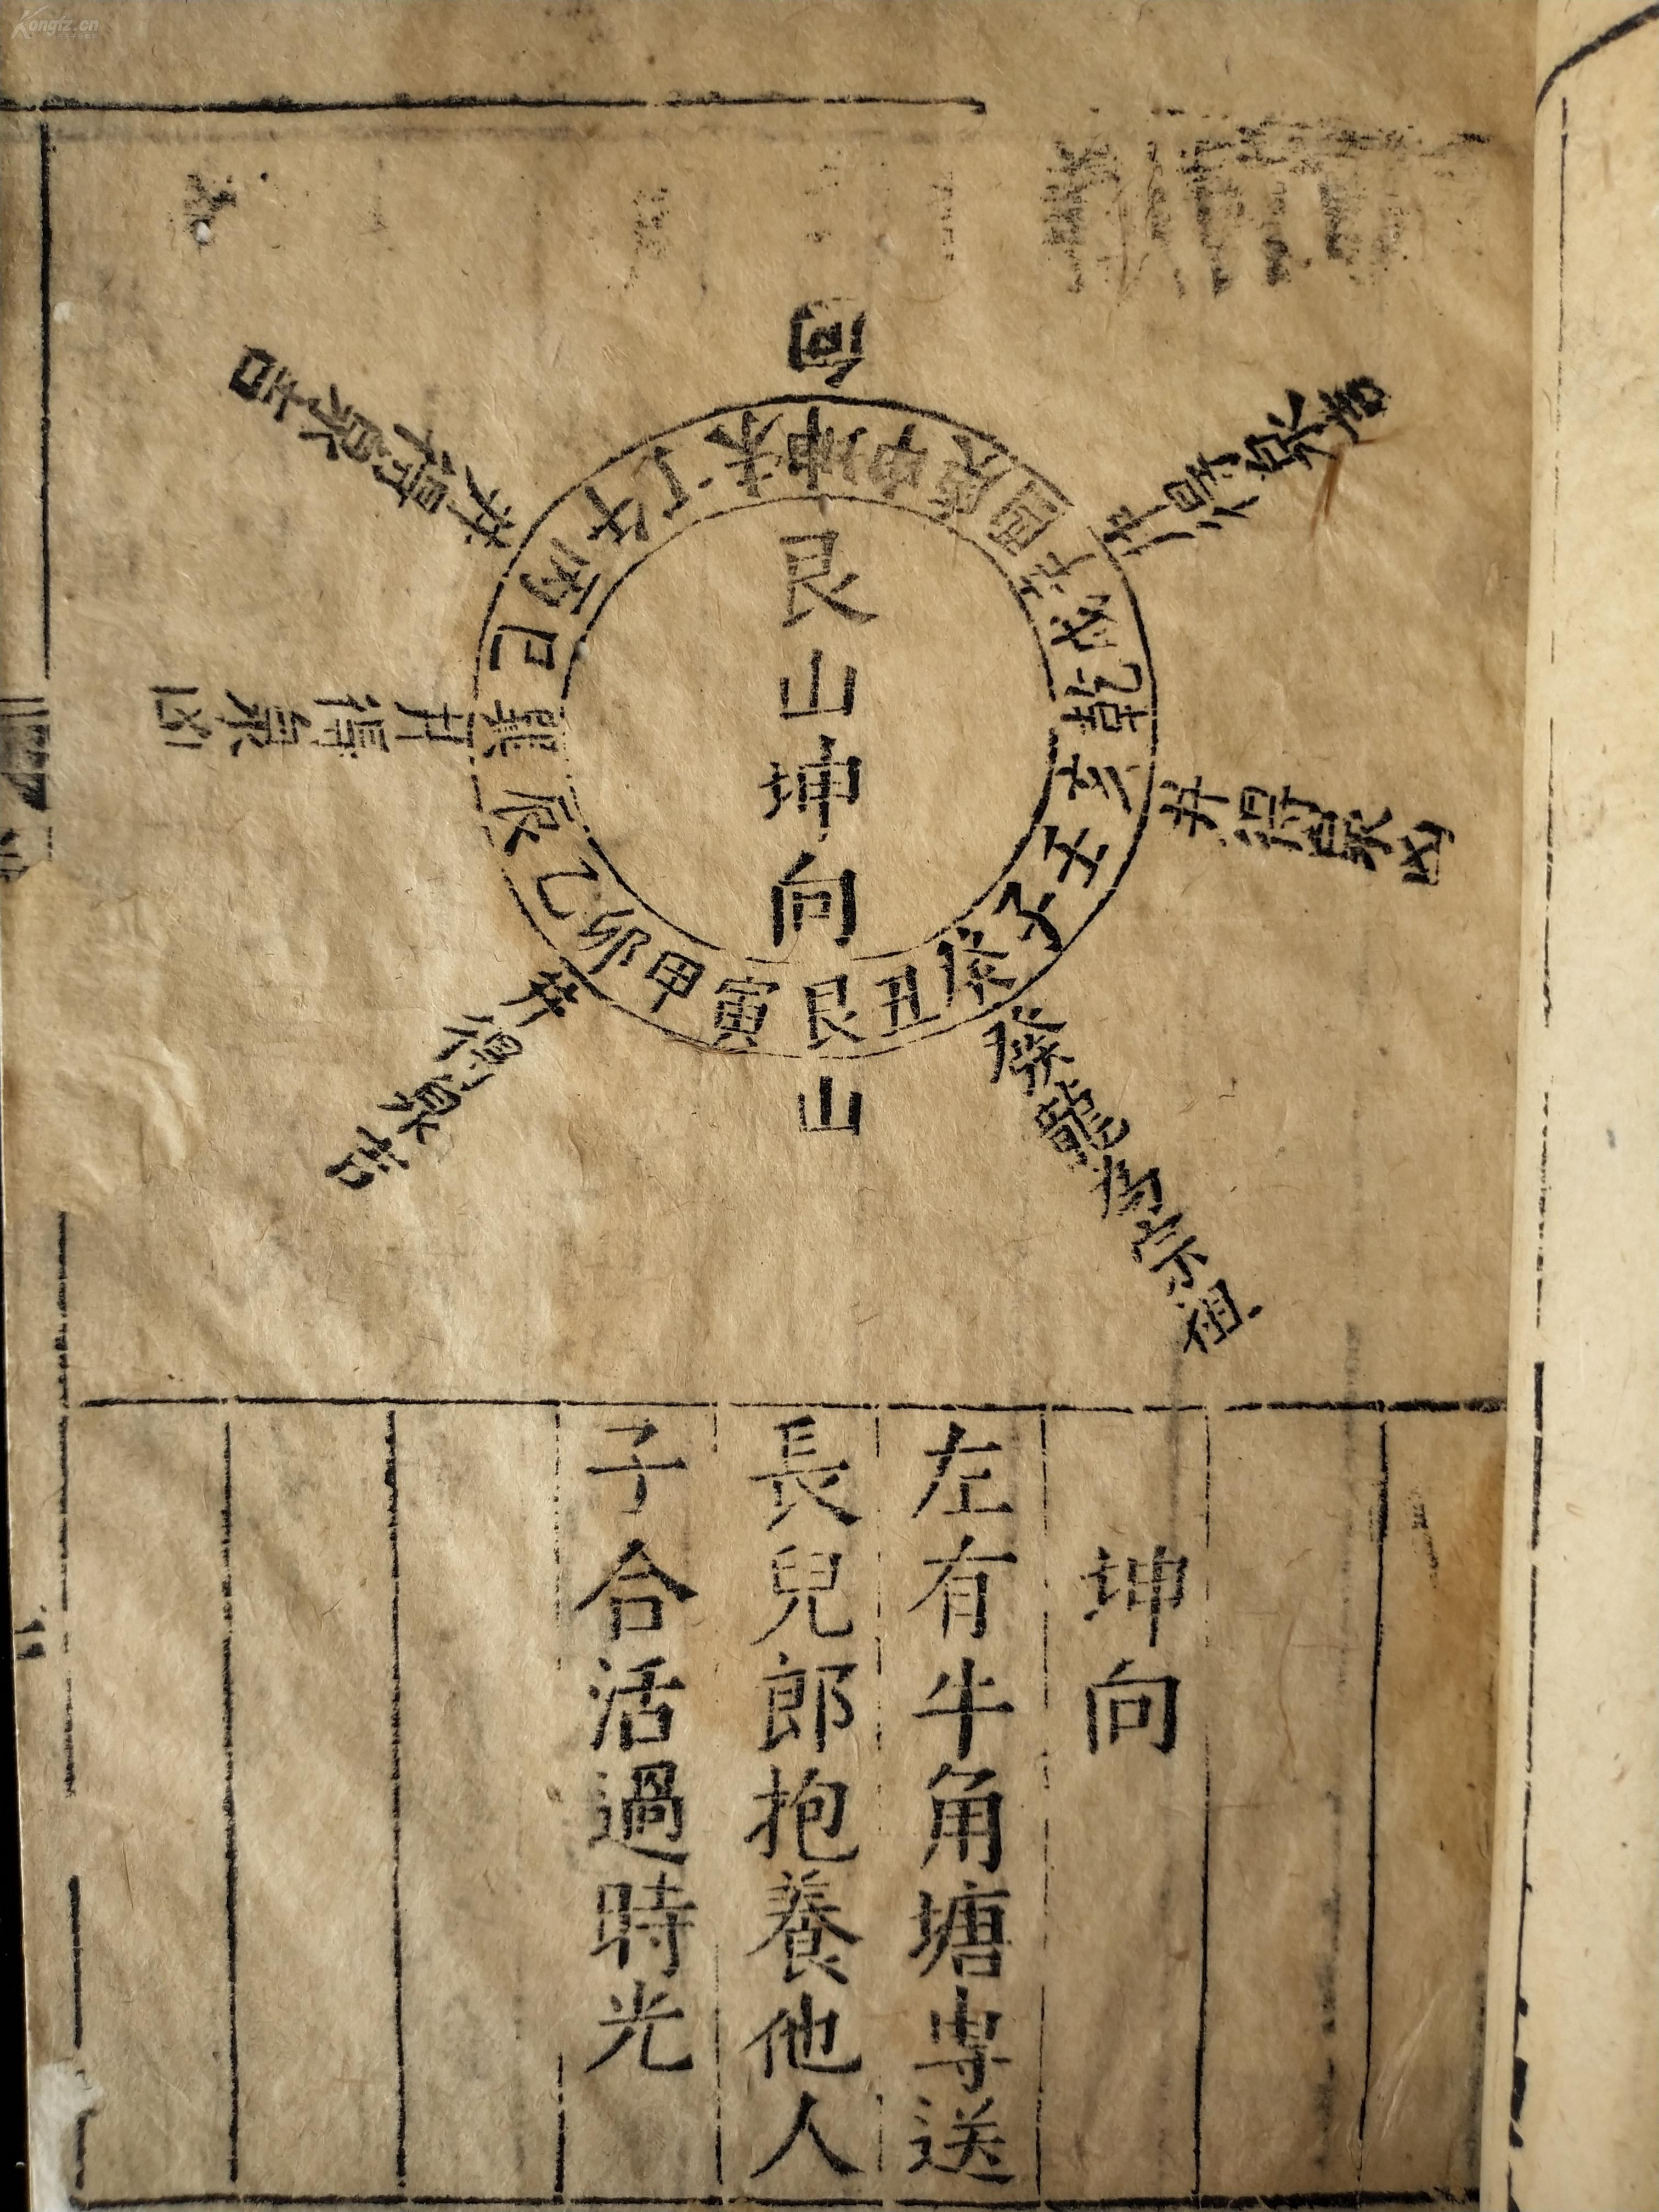 Kongfz.cn
向
坤申庚酉辛戌乾亥壬子癸丑艮寅甲卯乙辰巽巳丙午丁未
山
艮山坤向
井得泉吉
井得泉凶
癸龍為宗祖
井得泉吉
井得泉凶
井得泉吉
坤向
左有牛角塘專送
長兒郎抱養他人
子合活過時光